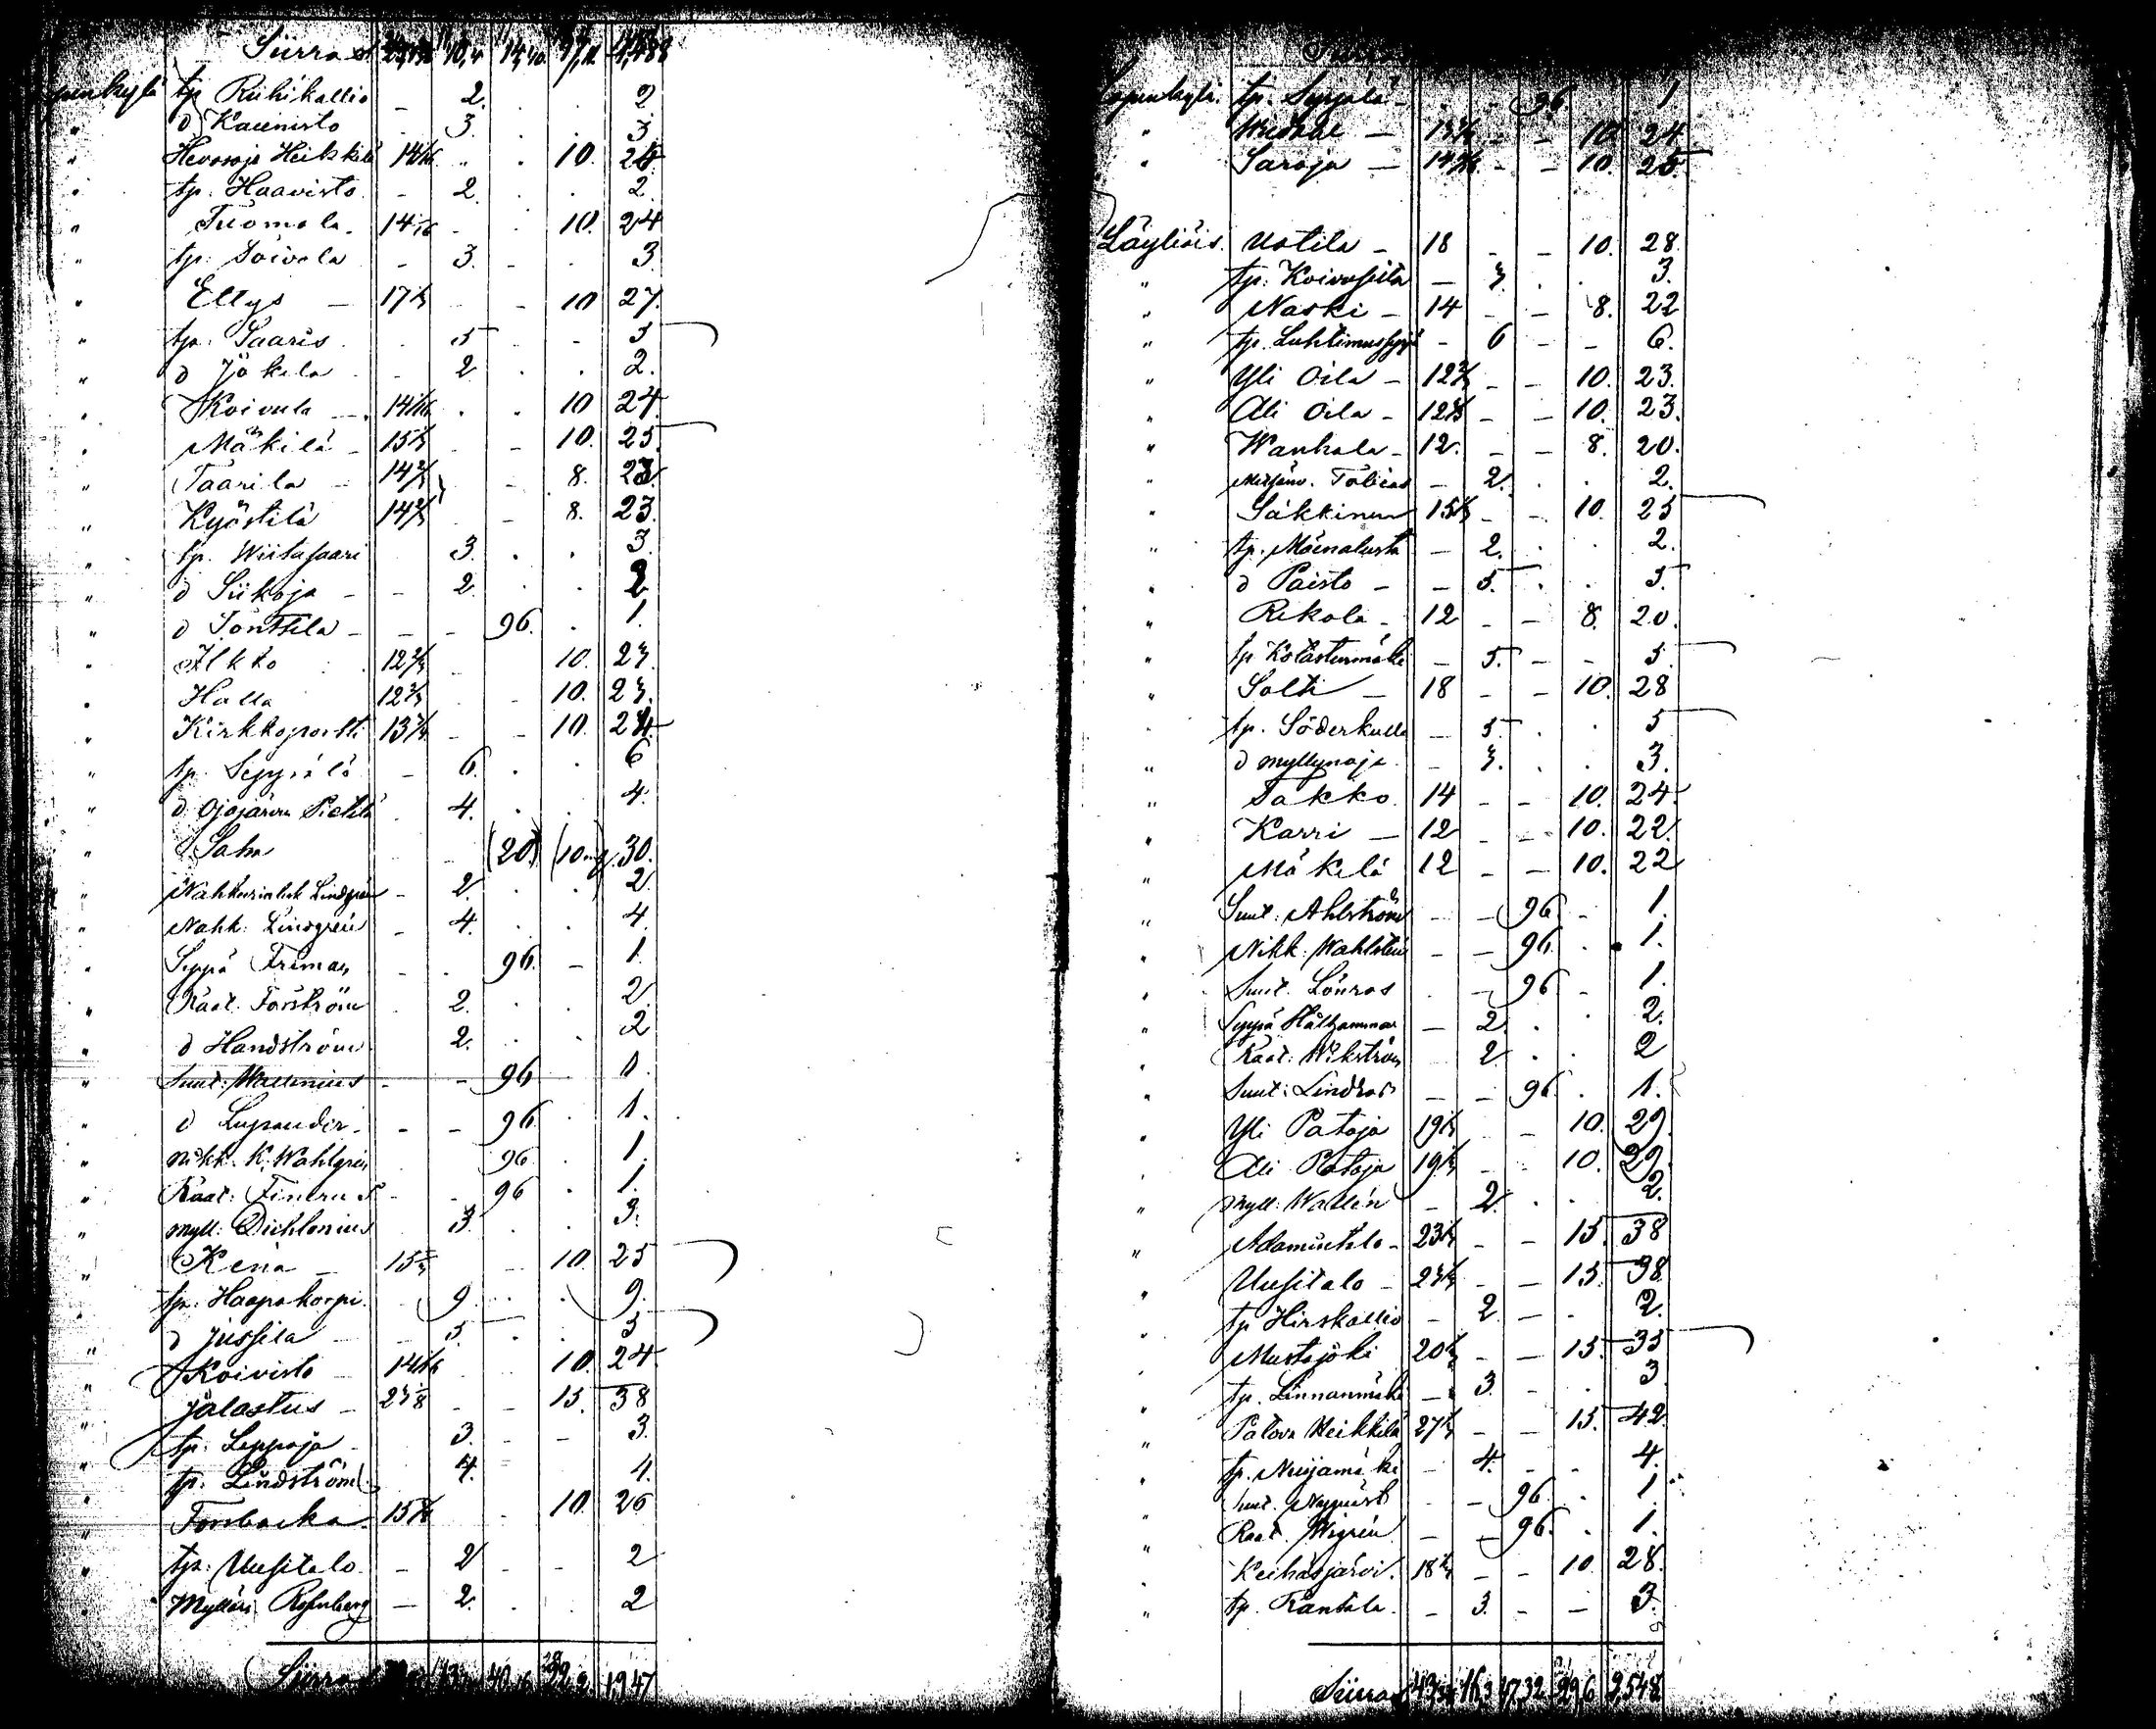 Siirros 10,4 14,40
tp Riihikallio - 2. . . 2
" d Kaunisto . 3. . . 3.
" Hevosoja Heikkilä 14 1/16 " . 10. 25
" tp. Haavisto - 2. . . 2.
" Tuomola. 14 1/16 - . 10. 24
" tp. Toivola - 3. - . 3.
" Eltys - 17 1/3 - - 10 27.
" tp. Saaris . 5 - - 5
" d Jokela - 2 . . 2.
" Koivula - 14 1/16 . . 10 24.
" Mäkilä - 15 1/3 - 10. 25
" Taarila - 14 2/3 - 8. 23.
" Kyöstilä 14 2/3 - 8. 23.
" tp. Wiitasaari 3. . . 3.
" d Siikoja - - 2. . . 2
" d Tonttila - - - 96. . 1.
" Ilkko 12 2/3 10. 23.
" Halla 12 2/3 - 10. 23.
" Kirkkoportti 13 3/4 - - 10. 24
" tp. Seppälä - 6. . . 6
" d Ojajärven Pietilä . 4. . 4.
" Saha - (20) (10 30.
" Lindgren - 2. . . 2
" Nahk. Lindgren - 4. . . 4.
" Seppä Friman - . 96. - 1.
" Raat. Forström . 2. . . 2.
" d Handström 2. . . 2
" Suut. Wallenius - - 96 1.
" d Lupander - - - 96. . 1.
" Nikk. K. Wahlgren 96. . 1.
" Raat. - - 96 . 1.
" Myll. Dichlonius 3. . . 3.
" Kenä - 15 2/3 - 10. 25
" tp. Haapakorpi. . 9. . . 9.
" d Jussila - - 5 . . 5
" Koivisto - 14 1/16 10. 24
" Jalastus - 23 1/8 - - 15. 38
" tp. Leppoja - 3. - - 3.
" tp. Lindström 4. 4.
" Forsbacka. 15 - 10. 26
" tp. Uusitalo. - 2 - - 2
" Mylläri Rosenberg - 2. . . 2
Siirros 1,947
tp. Seppälä - 96. 1
" - - 10 24.
" Saroja - - - 10. 25
Läyliäis. Uotila - 18 - - 10. 28.
" tp. Koivusilta - 3. . . 3.
" Naski - 14 - - 8. 22
" tp. - 6 - - 6.
" Yli Oila - 12 2/3 - - 10. 23.
" Ali Oila - 12 2/3 - - 10. 23.
" Wanhala - 12. - - 8. 20.
" Tobias - 2. . . 2.
" Säkkinen 15 1/3 - - 10. 25
" tp. Mäenalusta - 2. . . 2.
" d Paisto - - 5. . . 5.
" Rekola - 12 - - 8. 20.
" tp - 5. - - 5
" Solti - 18 - - 10. 28
" tp. Söderkulla - 5. . . 5
" d Myllynoja - 3. . . 3.
" Takko. 14 - - 10. 24.
" Karri - 12 - - 10. 22.
" Mäkelä 12 - - 10. 22
" Suut. Ahlström - - 96. - 1.
" Nikk. Wahlsten - - 96. . 1.
" Suut. Lönros . - 96. - 1.
" Seppä Hälthammar - 2. . . 2.
" Raat. Wikström 2. . . 2
" Suut. Lindros - - 96. . 1.
" Yli Pätoja 19 1/3 - - 10. 29.
" Ali Pätoja 19 1/3 - - 10. 29.
" Myll. Wallén - 2. . . 2.
" Adamintalo - 23 1/3 - - 15. 38
" Uusitalo - 23 1/3 - - 15. 38.
" tp Hirskallio - 2 - - 2.
" Mustajoki 20 - - 15. 35
" tp. Linnanmäki - 3. - . 3
" Palova Heikkilä 27 - - 15. 42.
" tp. Nuijamäki - 4. - . 4.
" Suut. Nyquist - - 96. . 1
" Raat. Wigren - - 96. . 1.
" Keihäsjärvi. 18 - - 10 28.
" tp. Rantala. - 3. - - 3.
Siirros 2,548